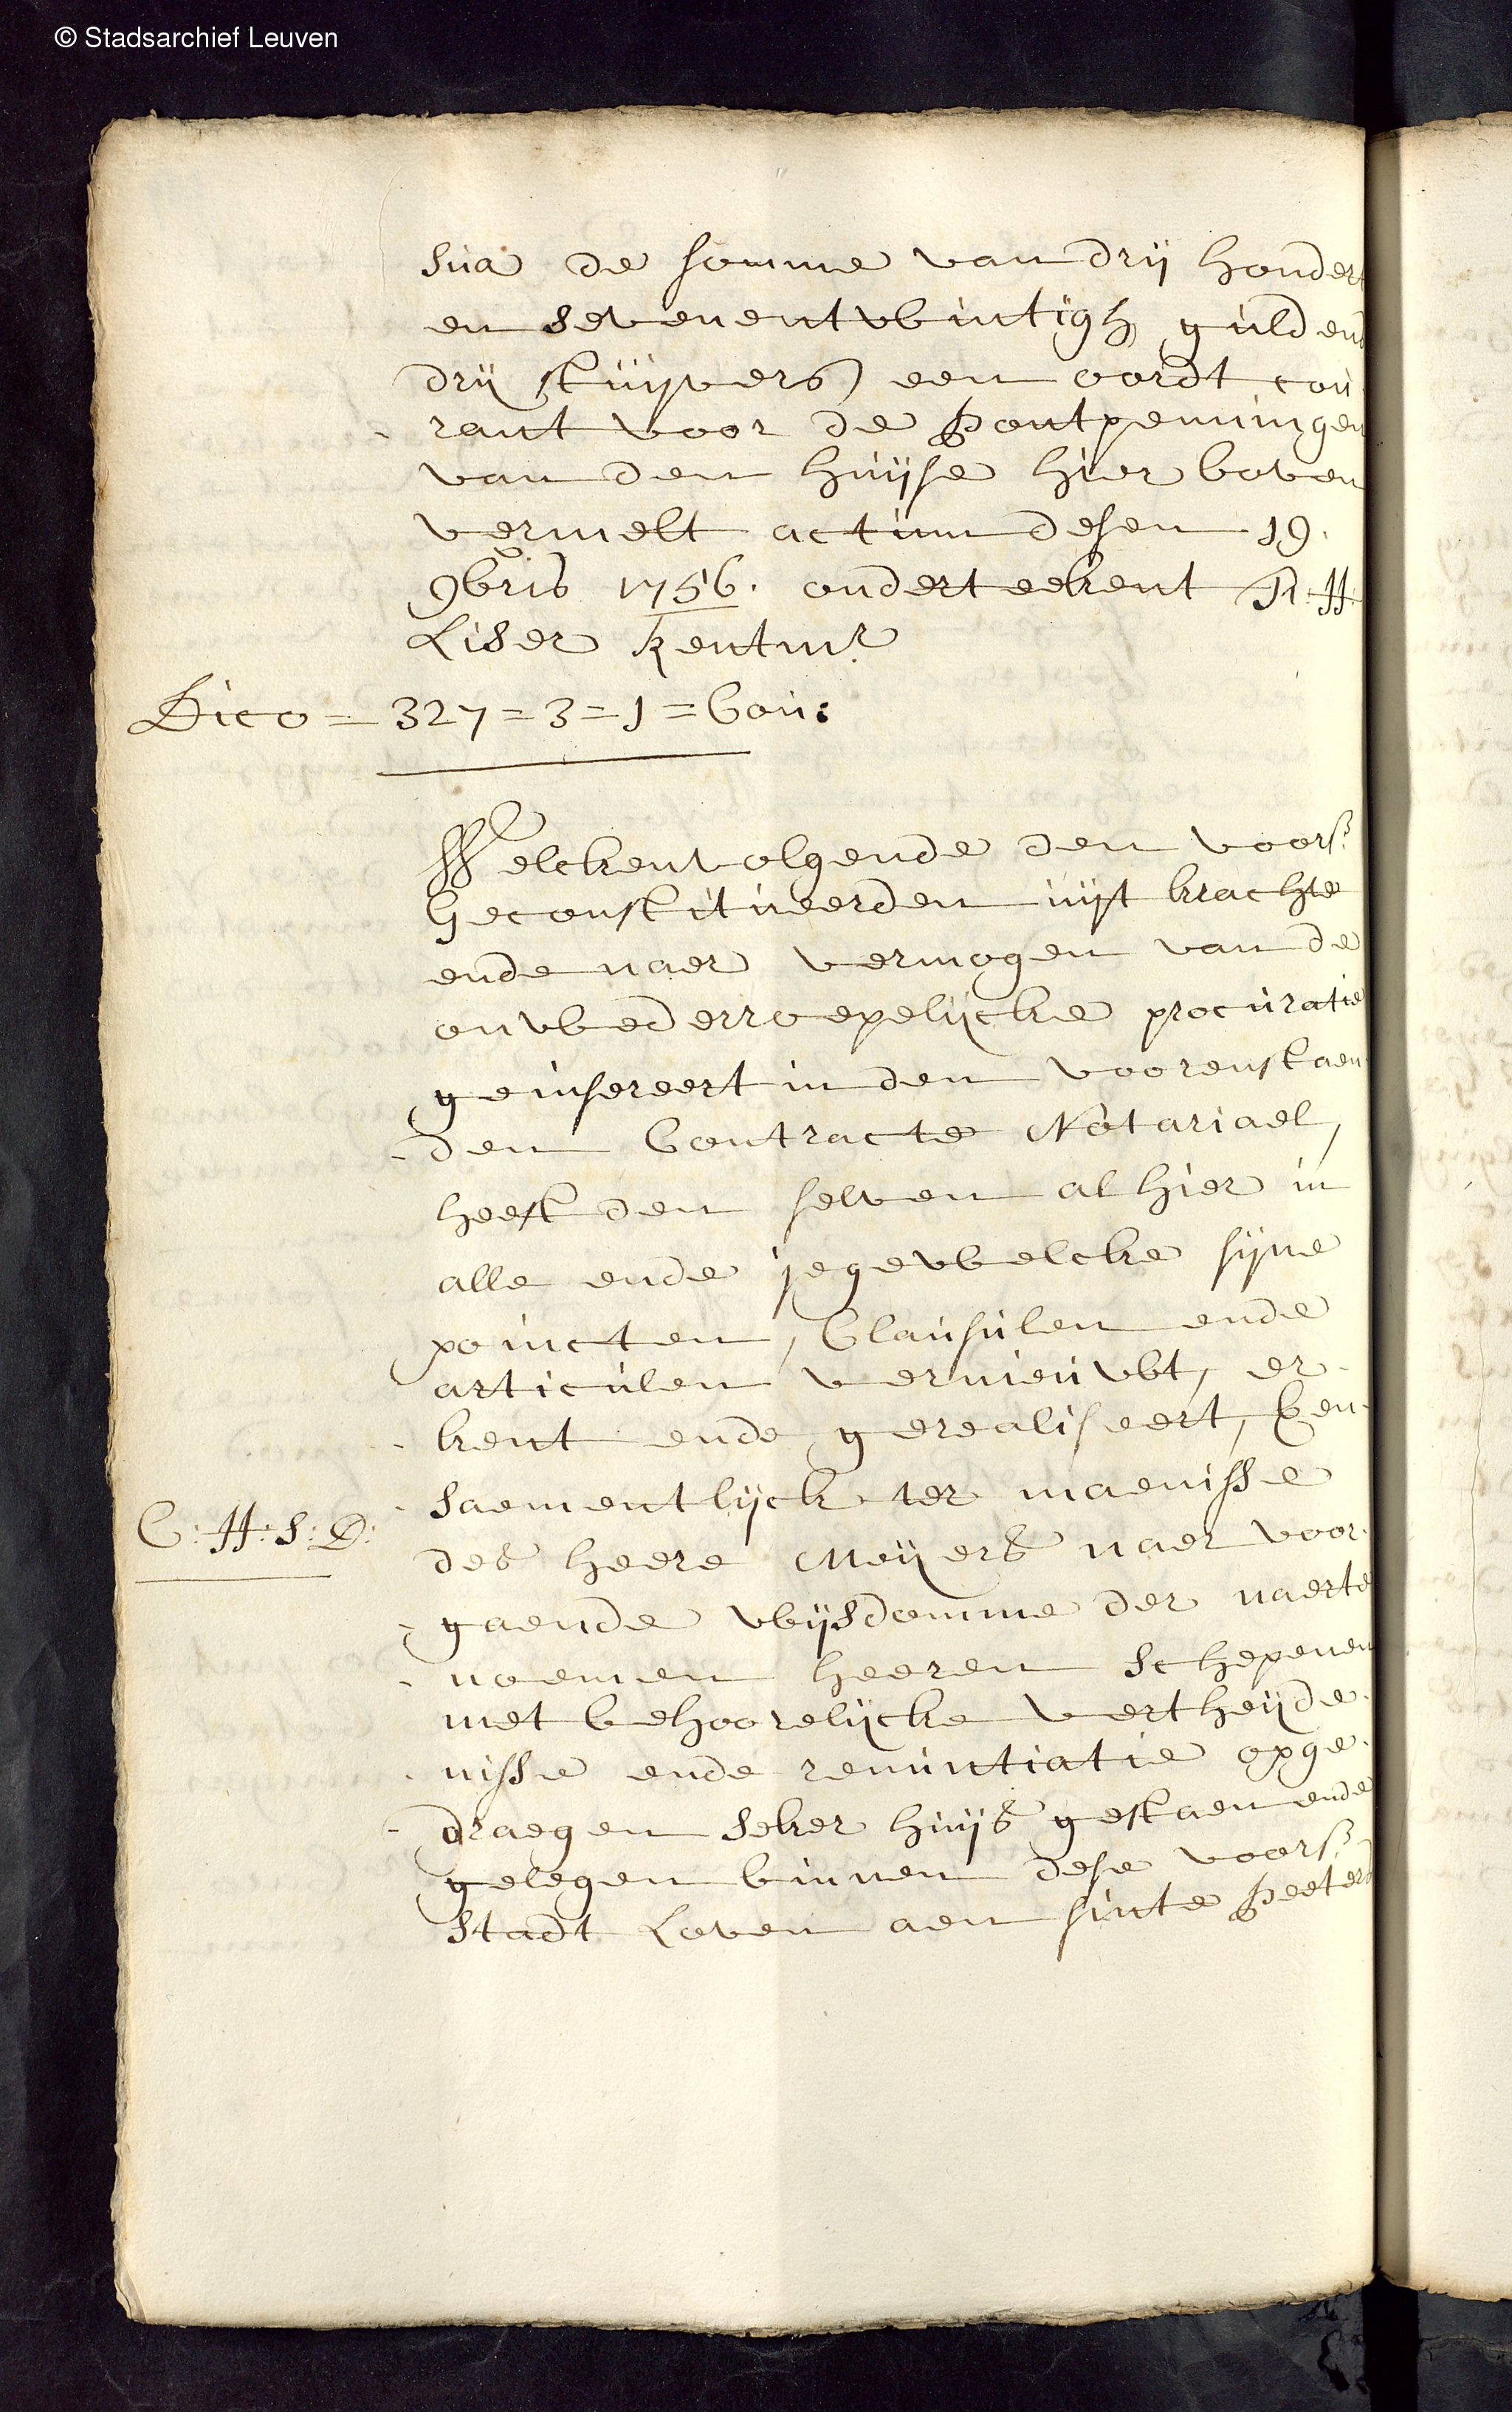 © Stadsarchief Leuven
sua de somme van drij hondert
en seventwintigh guldens
drij stuijvers een oordt cou
- rant voor de pontpenningen
van den huijse hier boven
vermelt actum desen 19.
9bris 1756. onderteekent H:
Liser rentmr
Dico = 327 = 3 = 1 = Cou:
Welckenvolgende den voors:
Geconstitueerden uijt krachte
ende naer vermogen van de
onwederroepelijcke procuratie
geinsereert in den voorenstaen
- den Contracte Notariael,
heeft den selven alhier in
alle ende jegewelcke sijne
poincten, Clausulen ende
articulen vernieuwt, er
- kent ende gerealiseert, Con
- saementlijck ter maenisse
C: H: S: D:
des heere Meijers naer voor
- gaende wijsdomme der naerte
- noemen heeren schepenen
met behoorelijcke vertheijde
- nisse ende renuntiatie opge
- draegen seker huijs gestaen ende
gelegen binnen dese voors:
stadt Loven aen sinte peeters